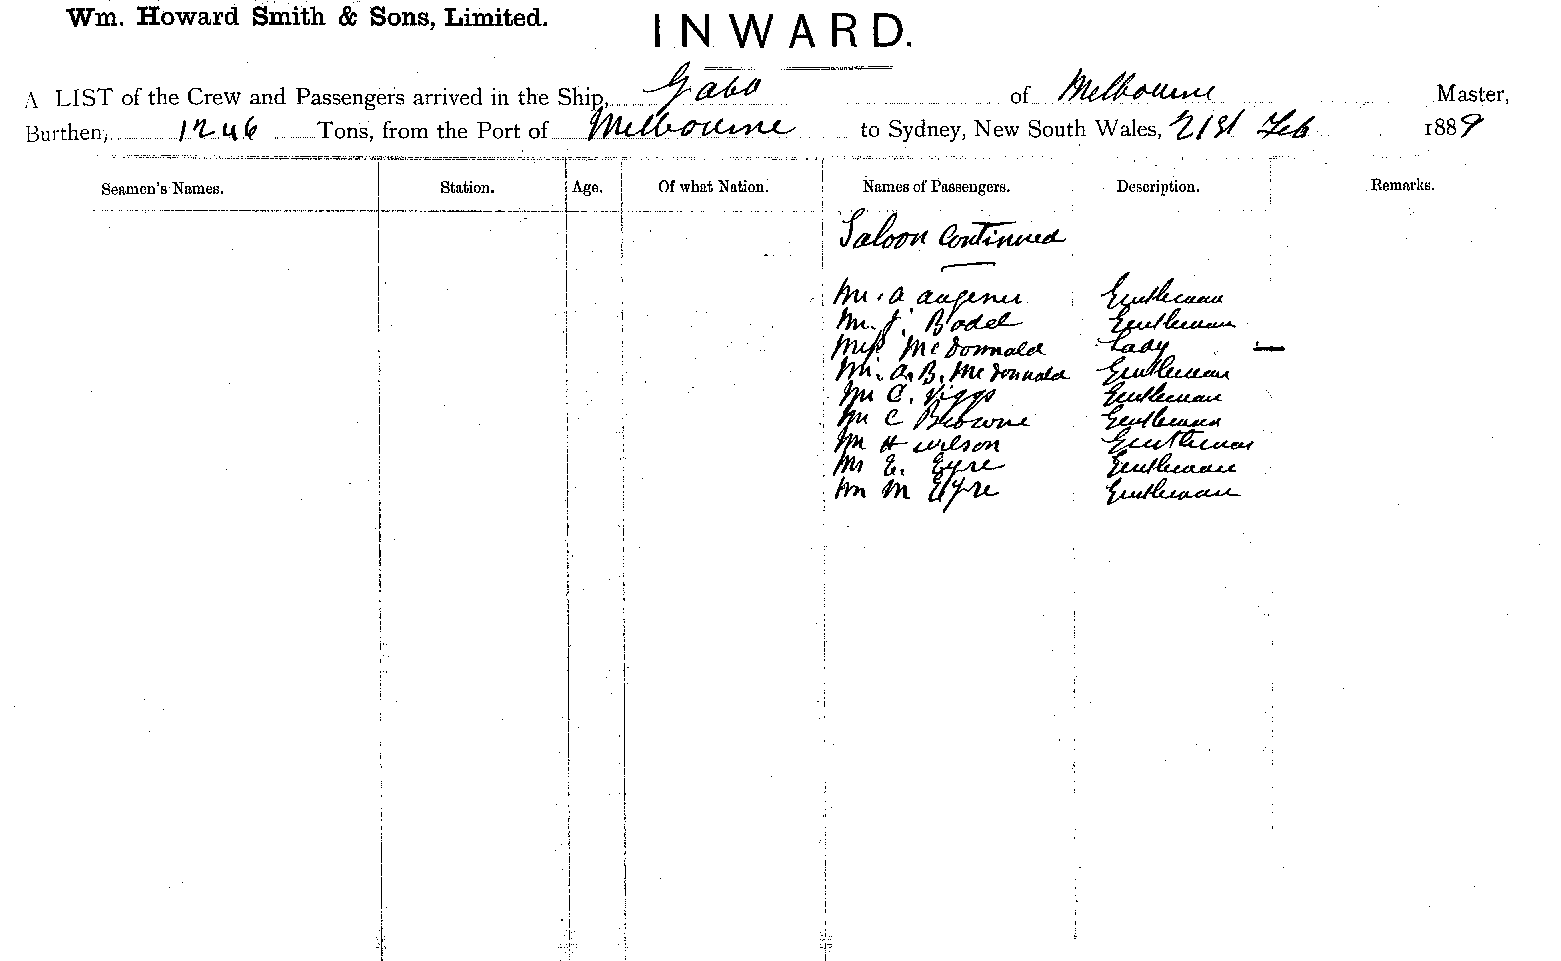 Wm. Howard Smith & Sons, Limited.
INWARD.
A LIST of the Crew and Passengers arrived in the Ship, Gabo of Melbourne Master,
Burthen, 1246 Tons, from the Port of Melbourne to Sydney, New South Wales, 21st Feb 1889
Seamen's Names. Station. Age. Of what Nation. Names of Passengers. Description. Remarks.
Saloon Continued
Mr. A Augener Gentleman
Mr. J. Bodel Gentleman
Miss McDonnald Lady
Mr. A. B. McDonnald Gentleman
Mr C. Gentleman
Mr C Browne Gentleman
Mr H Wilson Gentleman
Mr E. Eyre Gentleman
Mr M Eyre Gentleman